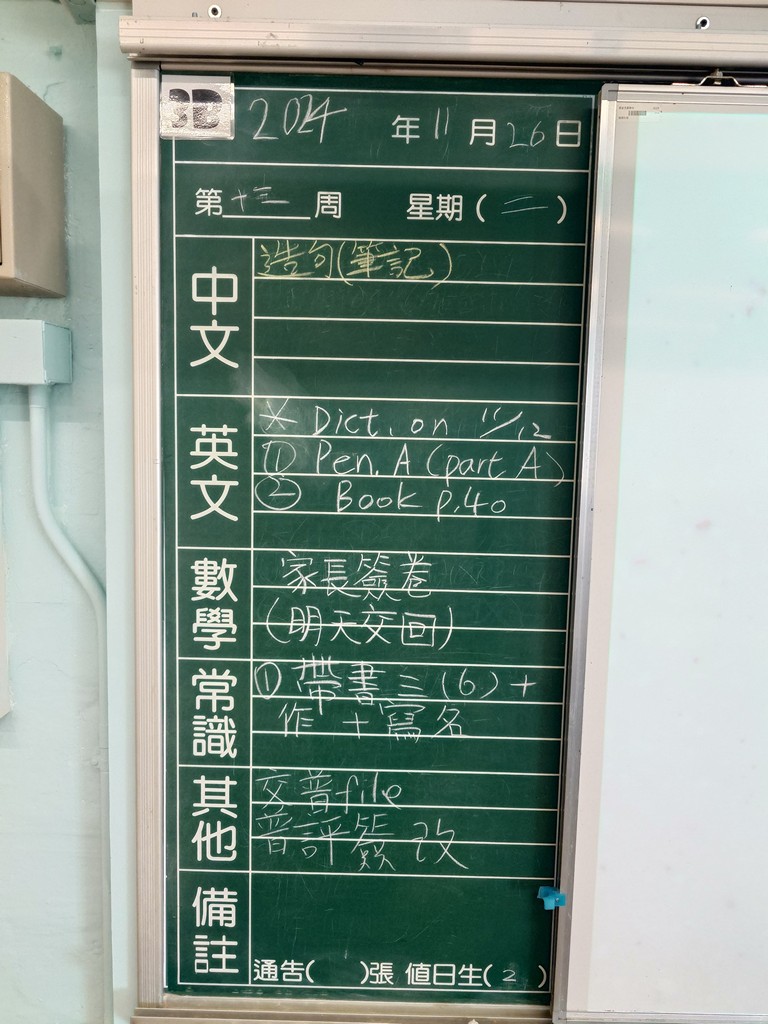 3B
2024 年 11 月 26 日
第 十三 周 星期 ( 二 )
中文
造句(筆記)
英文
* Dict. on 11/12
① Pen. A (part A)
② Book p.40
數學
家長簽卷
(明天交回)
常識
① 帶書三(6)+
作 + 寫名
其他
交普file
普評簽改
備註
通告( )張 值日生( 2 )